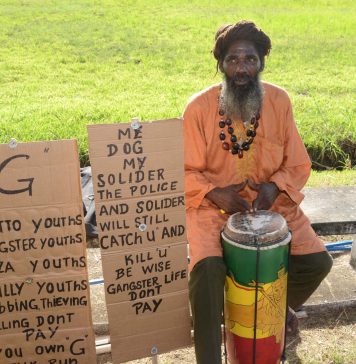 G "
TTO YOUTHS
GSTER YOUTHS
ZA YOUTHS
ULLY YOUTHS
BBING, THIEVING
LLING DONT
PAY
YOU OWN G
RUN
ME
DOG
MY
SOLIDER
THE POLICE
AND SOLIDER
WILL STILL
CATCH 'U' AND
KILL 'U
BE WISE
GANGSTER LIFE
DONT
PAY